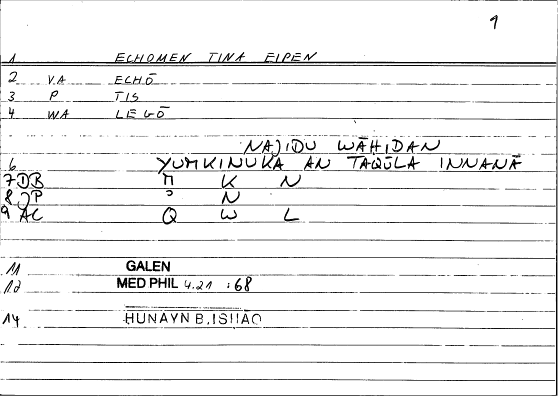 1
1 ECHOMEN TINA EIPEN
2 V.A ECHŌ
3 P TIS
4 WA LEGŌ
NAJIDU WĀHIDAN
6 YUMKINUKA AN TAQŪLA INNANĀ
7 DB M K N
8 JP ʾ N
9 AC Q W L
11 GALEN
12 MED PHIL 4.21 :68
14 HUNAYN B.ISHAQ